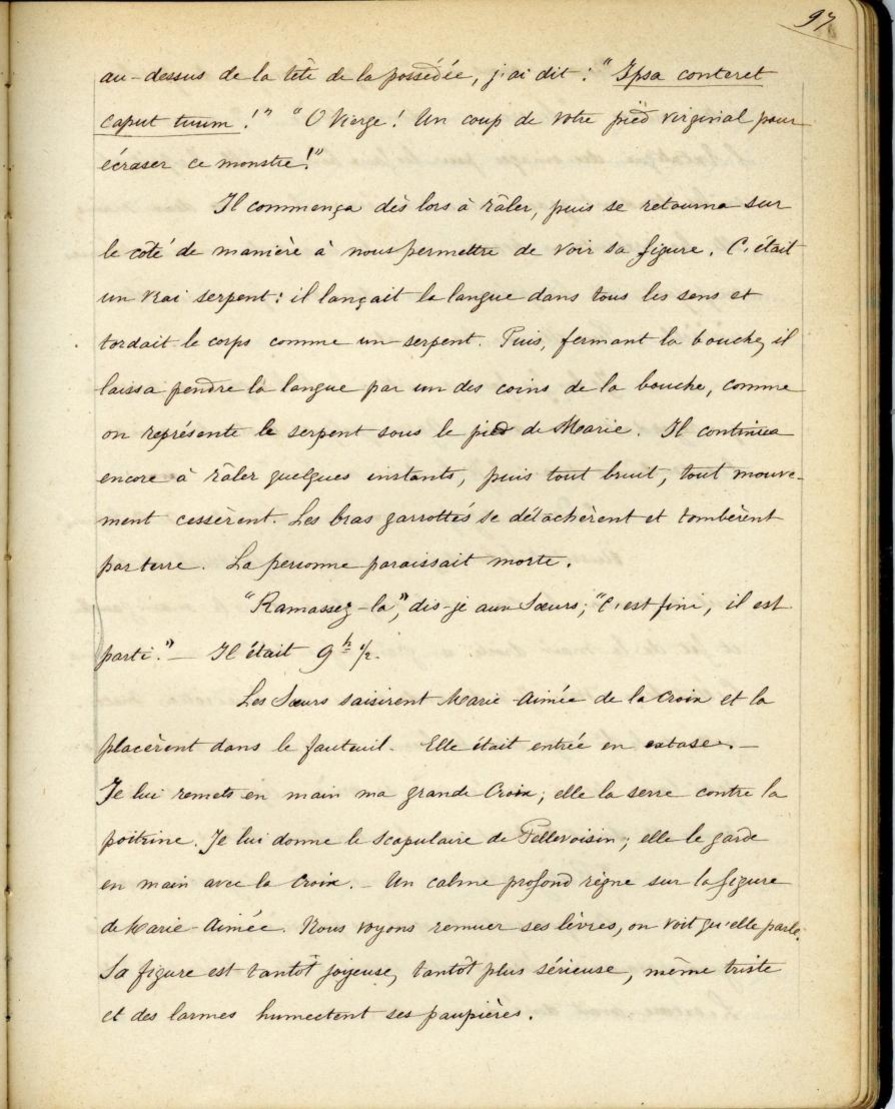 97
au-dessus de la tête de la possédée, j'ai dit : "Ipsa conteret
caput tuum !" "O Vierge ! Un coup de votre pied virginal pour
écraser ce monstre !"
Il commença dès lors à râler, puis se retourna sur
le côté de manière à nous permettre de voir sa figure. C'était
un vrai serpent : il lançait la langue dans tous les sens et
tordait le corps comme un serpent. Puis, fermant la bouche, il
laissa pendre la langue par un des coins de la bouche, comme
on représente le serpent sous le pied de Marie. Il continua
encore à râler quelques instants, puis tout bruit, tout mouve-
ment cessèrent. Les bras garrottés se détachèrent et tombèrent
par terre. La personne paraissait morte.
"Ramassez-la", dis-je aux Sœurs ; "C'est fini, il est
parti." — Il était 9 h ½.
Les Sœurs saisirent Marie-Aimée de la Croix et la
placèrent dans le fauteuil. Elle était entrée en extase. —
Je lui remets en main ma grande Croix ; elle la serre contre la
poitrine. Je lui donne le scapulaire de Pellevoisin ; elle le garde
en main avec la Croix. — Un calme profond règne sur la figure
de Marie-Aimée. Nous voyons remuer ses lèvres, on voit qu'elle parle.
Sa figure est tantôt joyeuse, tantôt plus sérieuse, même triste
et des larmes humectent ses paupières.